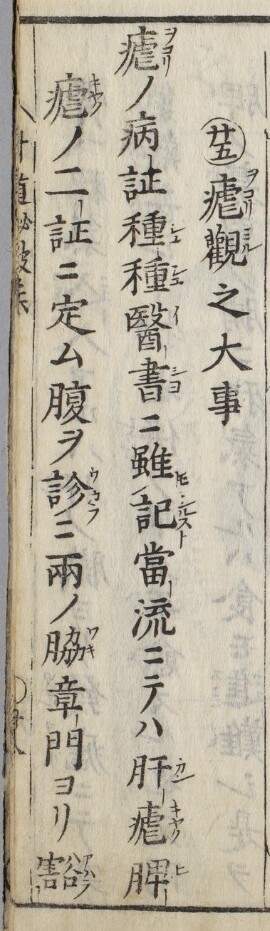 廿五 瘧觀之大事
瘧ノ病証種種醫書ニ雖記當流ニテハ肝瘧脾
瘧ノ二証ニ定ム腹ヲ診ニ兩ノ脇章門ヨリ